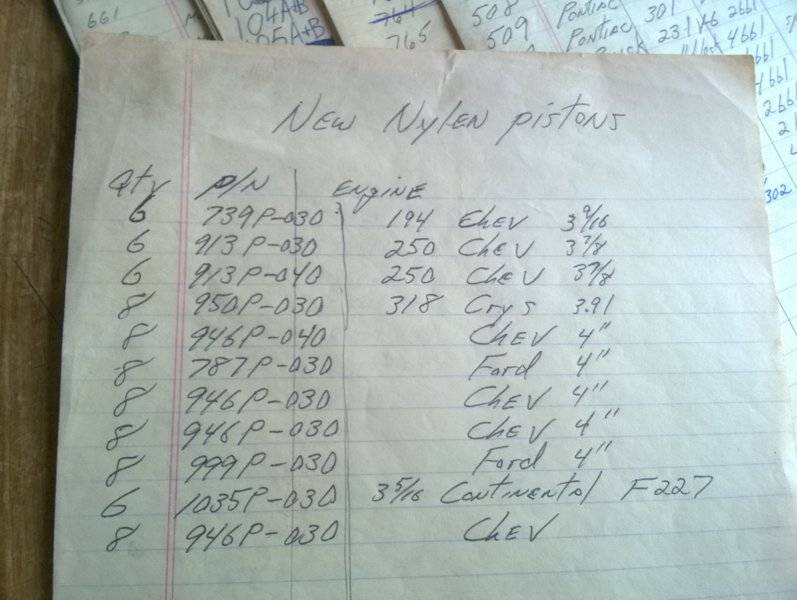 661
104A+B
105A+B
761
765
508 Pontiac
509 Pontiac 301 2661
231 V6 4661
New Nylen pistons
Qty P/N Engine
6 739P-030 194 Chev 3 9/16
6 913P-030 250 Chev 3 7/8
6 913P-040 250 Chev 3 7/8
8 950P-030 318 Crys 3.91
8 946P-040 Chev 4"
8 787P-030 Ford 4"
8 946P-030 Chev 4"
8 946P-030 Chev 4"
8 999P-030 Ford 4"
6 1035P-030 3 5/16 Continental F227
8 946P-030 Chev
302